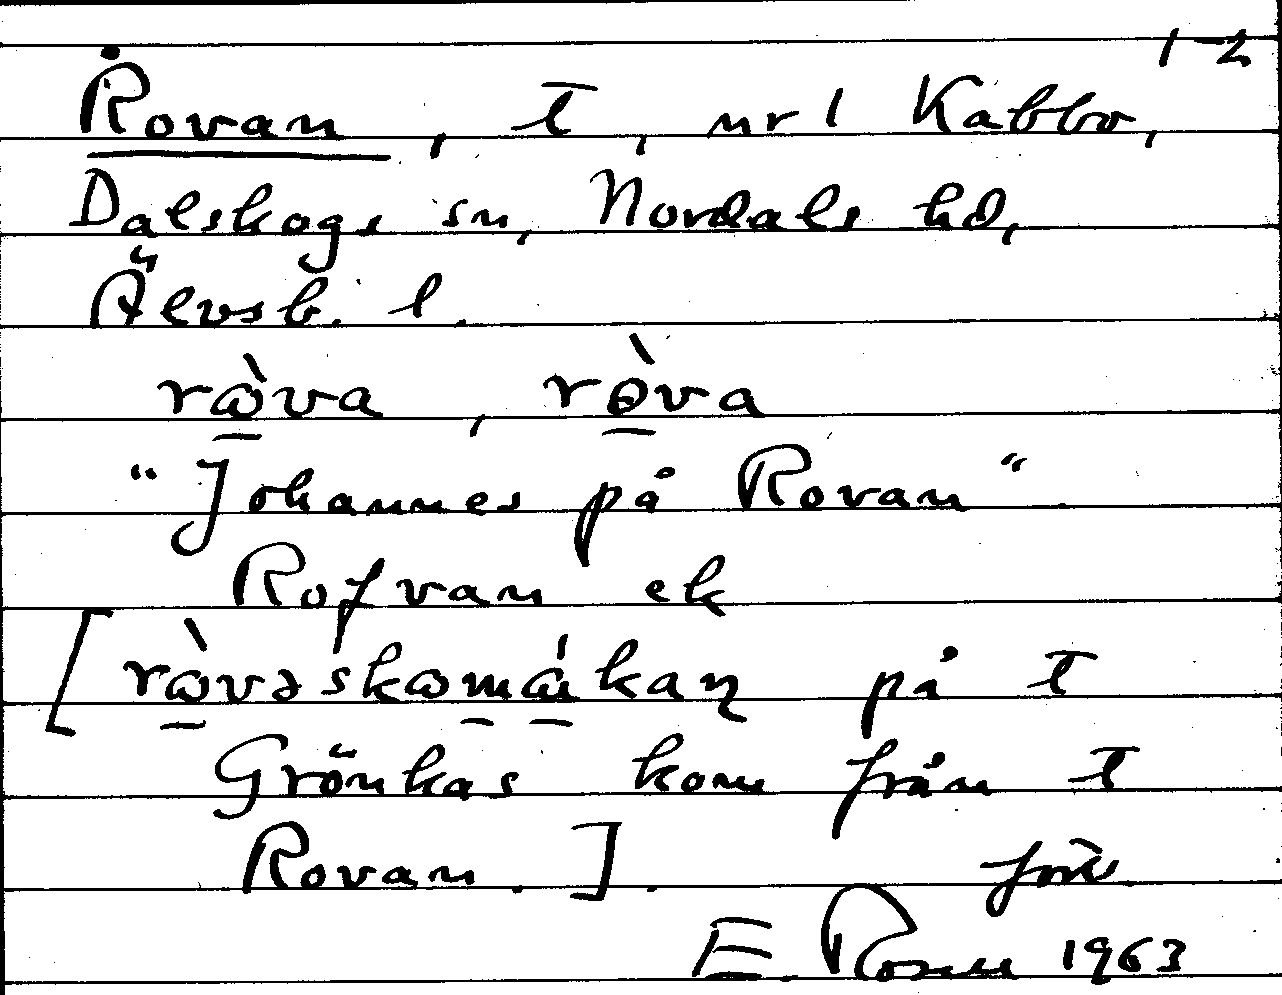 1-2
Rovan, t, nr 1 Kabbo,
Dalskogs sn, Nordals hd,
Älvsb. l.
ràva, ròva
"Johannes på Rovan"
Rofvan ek
[ràvəskamákan på t
Grönkas kom från t
Rovan.].
E. Rosén 1963